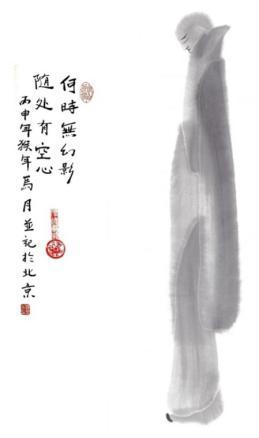 何時無幻影
随处有空心
丙申年猴年馬月並記於北京